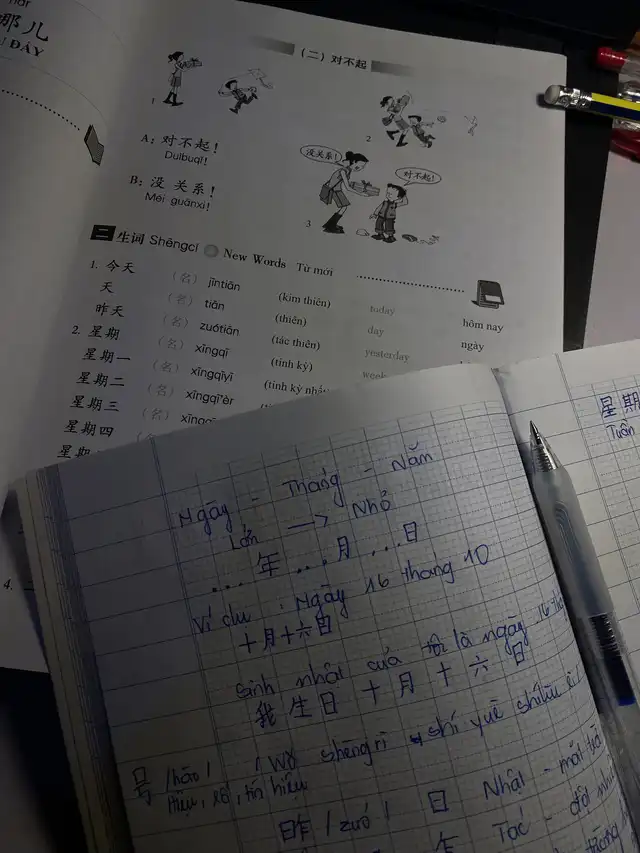 那儿
ĐÂY
（二）对不起
1
2
A：对不起！
Duìbuqǐ!
B：没关系！
Méi guānxi!
没关系！
对不起！
3
二 生词 Shēngcí New Words Từ mới
1. 今天 （名） jīntiān (kim thiên) today hôm nay
天 （名） tiān (thiên) day ngày
昨天 （名） zuótiān (tác thiên) yesterday
2. 星期 （名） xīngqī (tinh kỳ) week
星期一 （名） xīngqīyī (tinh kỳ nhất)
星期二 （名） xīngqī'èr
星期三
星期四
4.
Ngày - Tháng - Năm
Lớn → Nhỏ
... 年 ... 月 ... 日
Ví dụ : Ngày 16 tháng 10
十月十六日
Sinh nhật của tôi là ngày 16
我生日十月十六日
/ Wǒ shēngrì shí yuè shíliù
号 /hào/
Hiệu, số, tín hiệu
昨 /zuó/ 日 Nhật - mặt
Tác
星期
Tuần